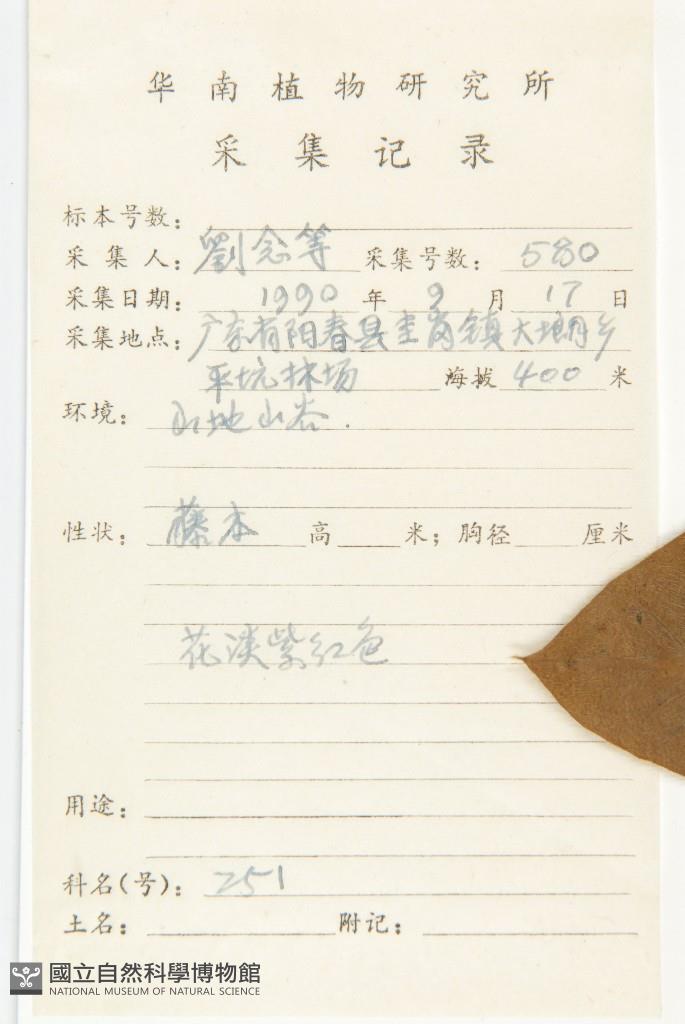 华南植物研究所
采集记录
标本号数：
采集人：劉念等 采集号数：580
采集日期：1990年9月17日
采集地点：广东省阳春县圭岗镇大塱乡
平坑林场 海拔400米
环境：山地山谷.
性状：藤本 高 米；胸径 厘米
花淡紫红色
用途：
科名(号)：251
土名： 附记：
國立自然科學博物館
NATIONAL MUSEUM OF NATURAL SCIENCE